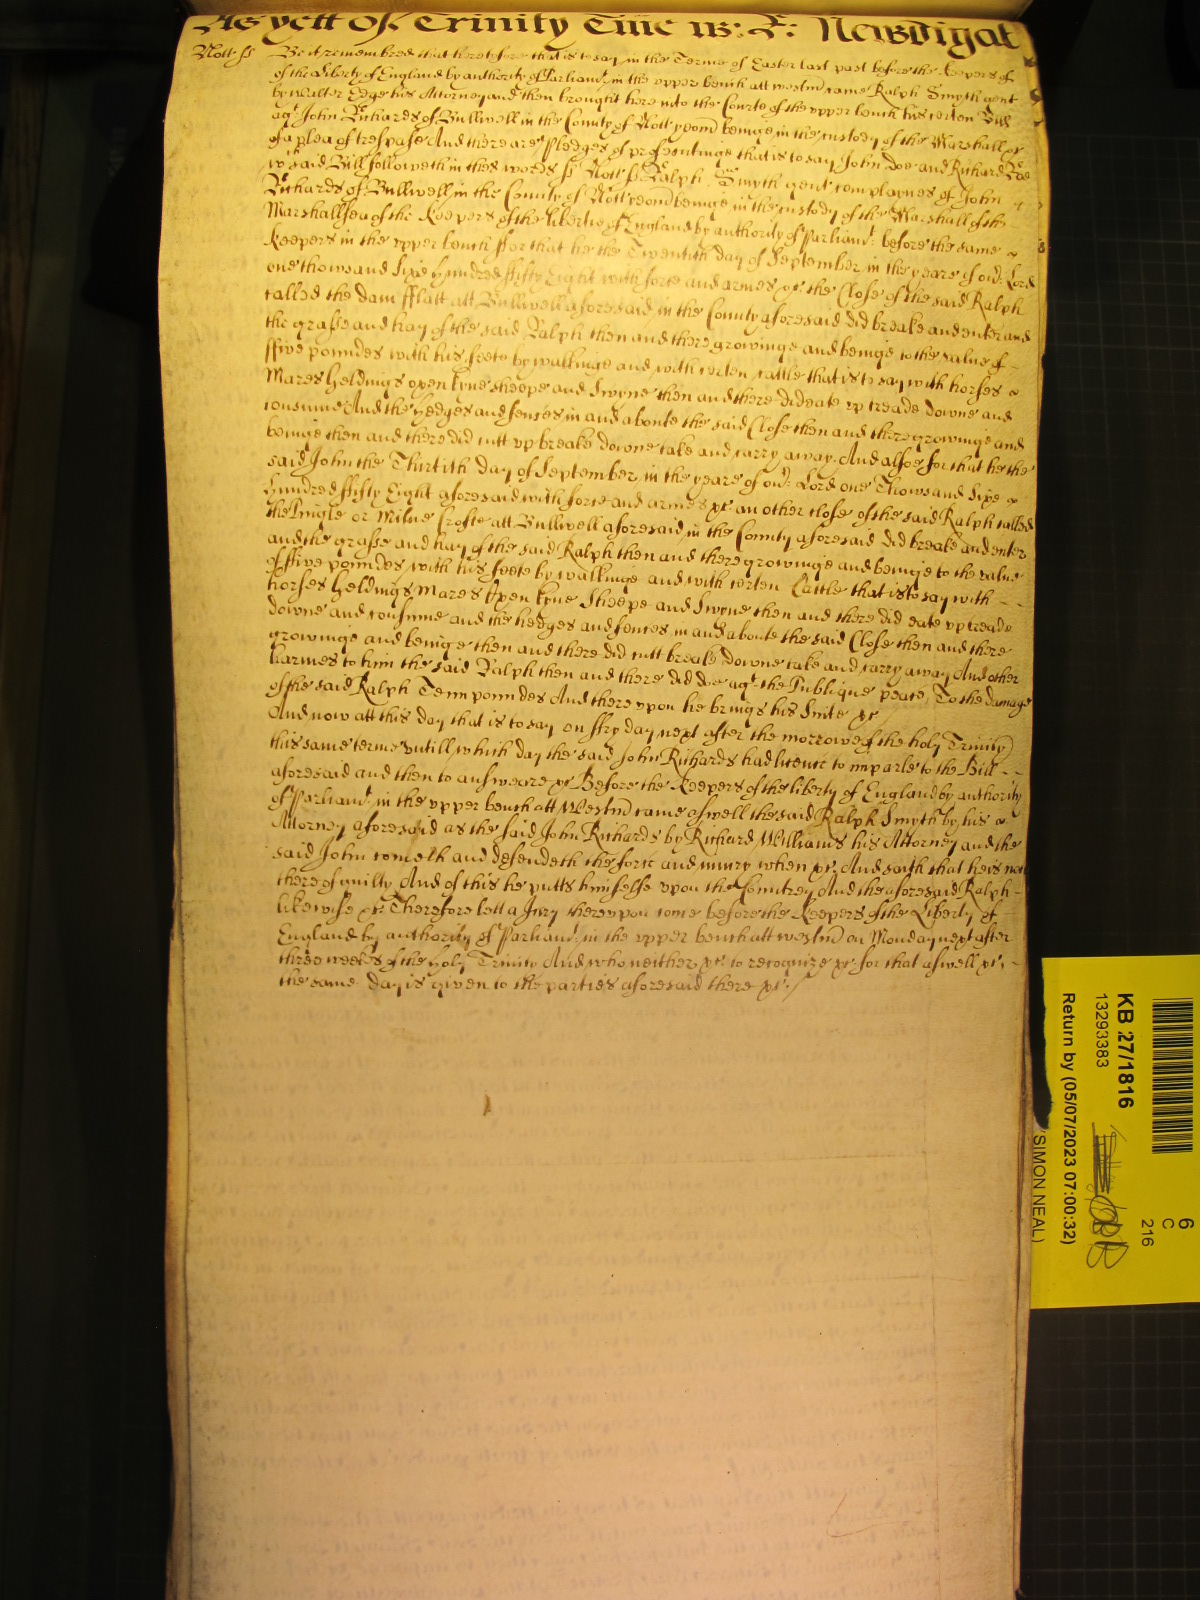 As yett of Trinity Tme w: R: Newdigat
Nott ss Be it remembred that heretofore that is to say in the Terme of Easter last past before the Keepers of
of the Liberty of England by authority of Parliamt in the upper bench att westmr came Ralph Smyth gent
by Walter Edge his Attorney and then brought here into the Courte of the upper bench his certen Bill
agt John Richards of Bullwell in the County of Nott yeoman beinge in the custody of the Marshall &c
of a plea of trespasse And there are pledges of prosecutinge that is to say John Doe and Richard Roe
wch said Bill followeth in thes words ss Nott ss Ralph Smyth gent complaynes of John
Richards of Bullwell in the County of Nott yeoman beinge in the custody of the Marshall of the
Marshallsea of the Keepers of the libertie of England by authority of Parliamt: before the same
Keepers in the upper bench ffor that he the Twentith day of September in the yeare of our Lord
one thowsand Sixe Hundred ffifty Eight with force and armes &c the Close of the said Ralph
called the dam fflatt att Bullwell aforesaid in the County aforesaid did breake and enter and
the grasse and hay of the said Ralph then and there growinge and beinge to the value of
ffive poundes with his feete by walkinge and with certen cattle that is to say with horses
Mares Geldings oxen kyne sheepe and Swyne then and there did eate up treade downe and
consume And the hedges and fences in and aboute the said Close then and there growinge and
beinge then and there did cutt up breake downe take and carry away And alsoe for that he the
said John the Thirtith day of September in the yeare of our Lord one Thowsand Sixe
Hundred ffifty Eight aforesaid with force and armes &c an other close of the said Ralph called
the Pingle or Milne Crofte att Bullwell aforesaid in the County aforesaid did breake and enter
and the grasse and hay of the said Ralph then and there growinge and beinge to the value
of ffive poundes with his feete by walkinge and with certen Cattle that is to say with
horses Geldings Mares Oxen kyne Sheepe and Swyne then and there did eate up treade
downe and consume and the hedges and fences in and aboute the said Close then and there
growinge and beinge then and there did cutt breake downe take and carry away And other
harmes to him the said Ralph then and there did doe agt the Publique peace, To the damage
of the said Ralph Tenn poundes And thereupon he brings his Suite &c
And now att this day that is to say on ffryday next after the morrowe of the holy Trinity
this same terme untill which day the said John Richards had licence to imparle to the Bill
aforesaid and then to answeare &c Before the Keepers of the liberty of England by authority
of Parliamt in the upper bench att Westmr came aswell the said Ralph Smyth by his
Attorney aforesaid as the said John Richards by Richard Williams his Attorney and the
said John cometh and defendeth the force and iniury when &c. And saith that he is not
thereof guilty And of this he putts himselfe upon the Countrey And the aforesaid Ralph
likewise &c Therefore lett a Jury thereupon come before the Keepers of the Liberty of
England by authority of Parliamt in the upper bench att westmr on Monday next after
three weekes of the holy Trinity And who neither &c to recognize &c for that aswell &c
the same day is given to the parties aforesaid there &c
KB 27/1816
13293383
Return by (05/07/2023 07:00:32)
SIMON NEAL)
6
C
216